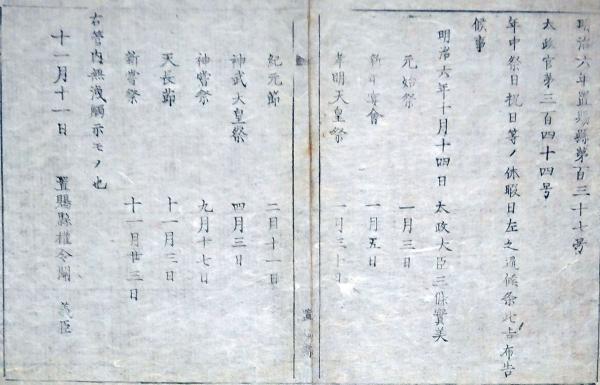 明治六年置賜縣第百三十七号
太政官第三百四十四号
年中祭日祝日等ノ休暇日左之通候条此旨布告
候事
明治六年十月十四日 太政大臣三條實美
元始祭 一月三日
新年宴會 一月五日
孝明天皇祭 一月三十日
紀元節 二月十一日
神武天皇祭 四月三日
神嘗祭 九月十七日
天長節 十一月三日
新嘗祭 十一月廿三日
右管内無洩觸示モノ也
十一月十一日 置賜縣權令關 義臣
置賜縣